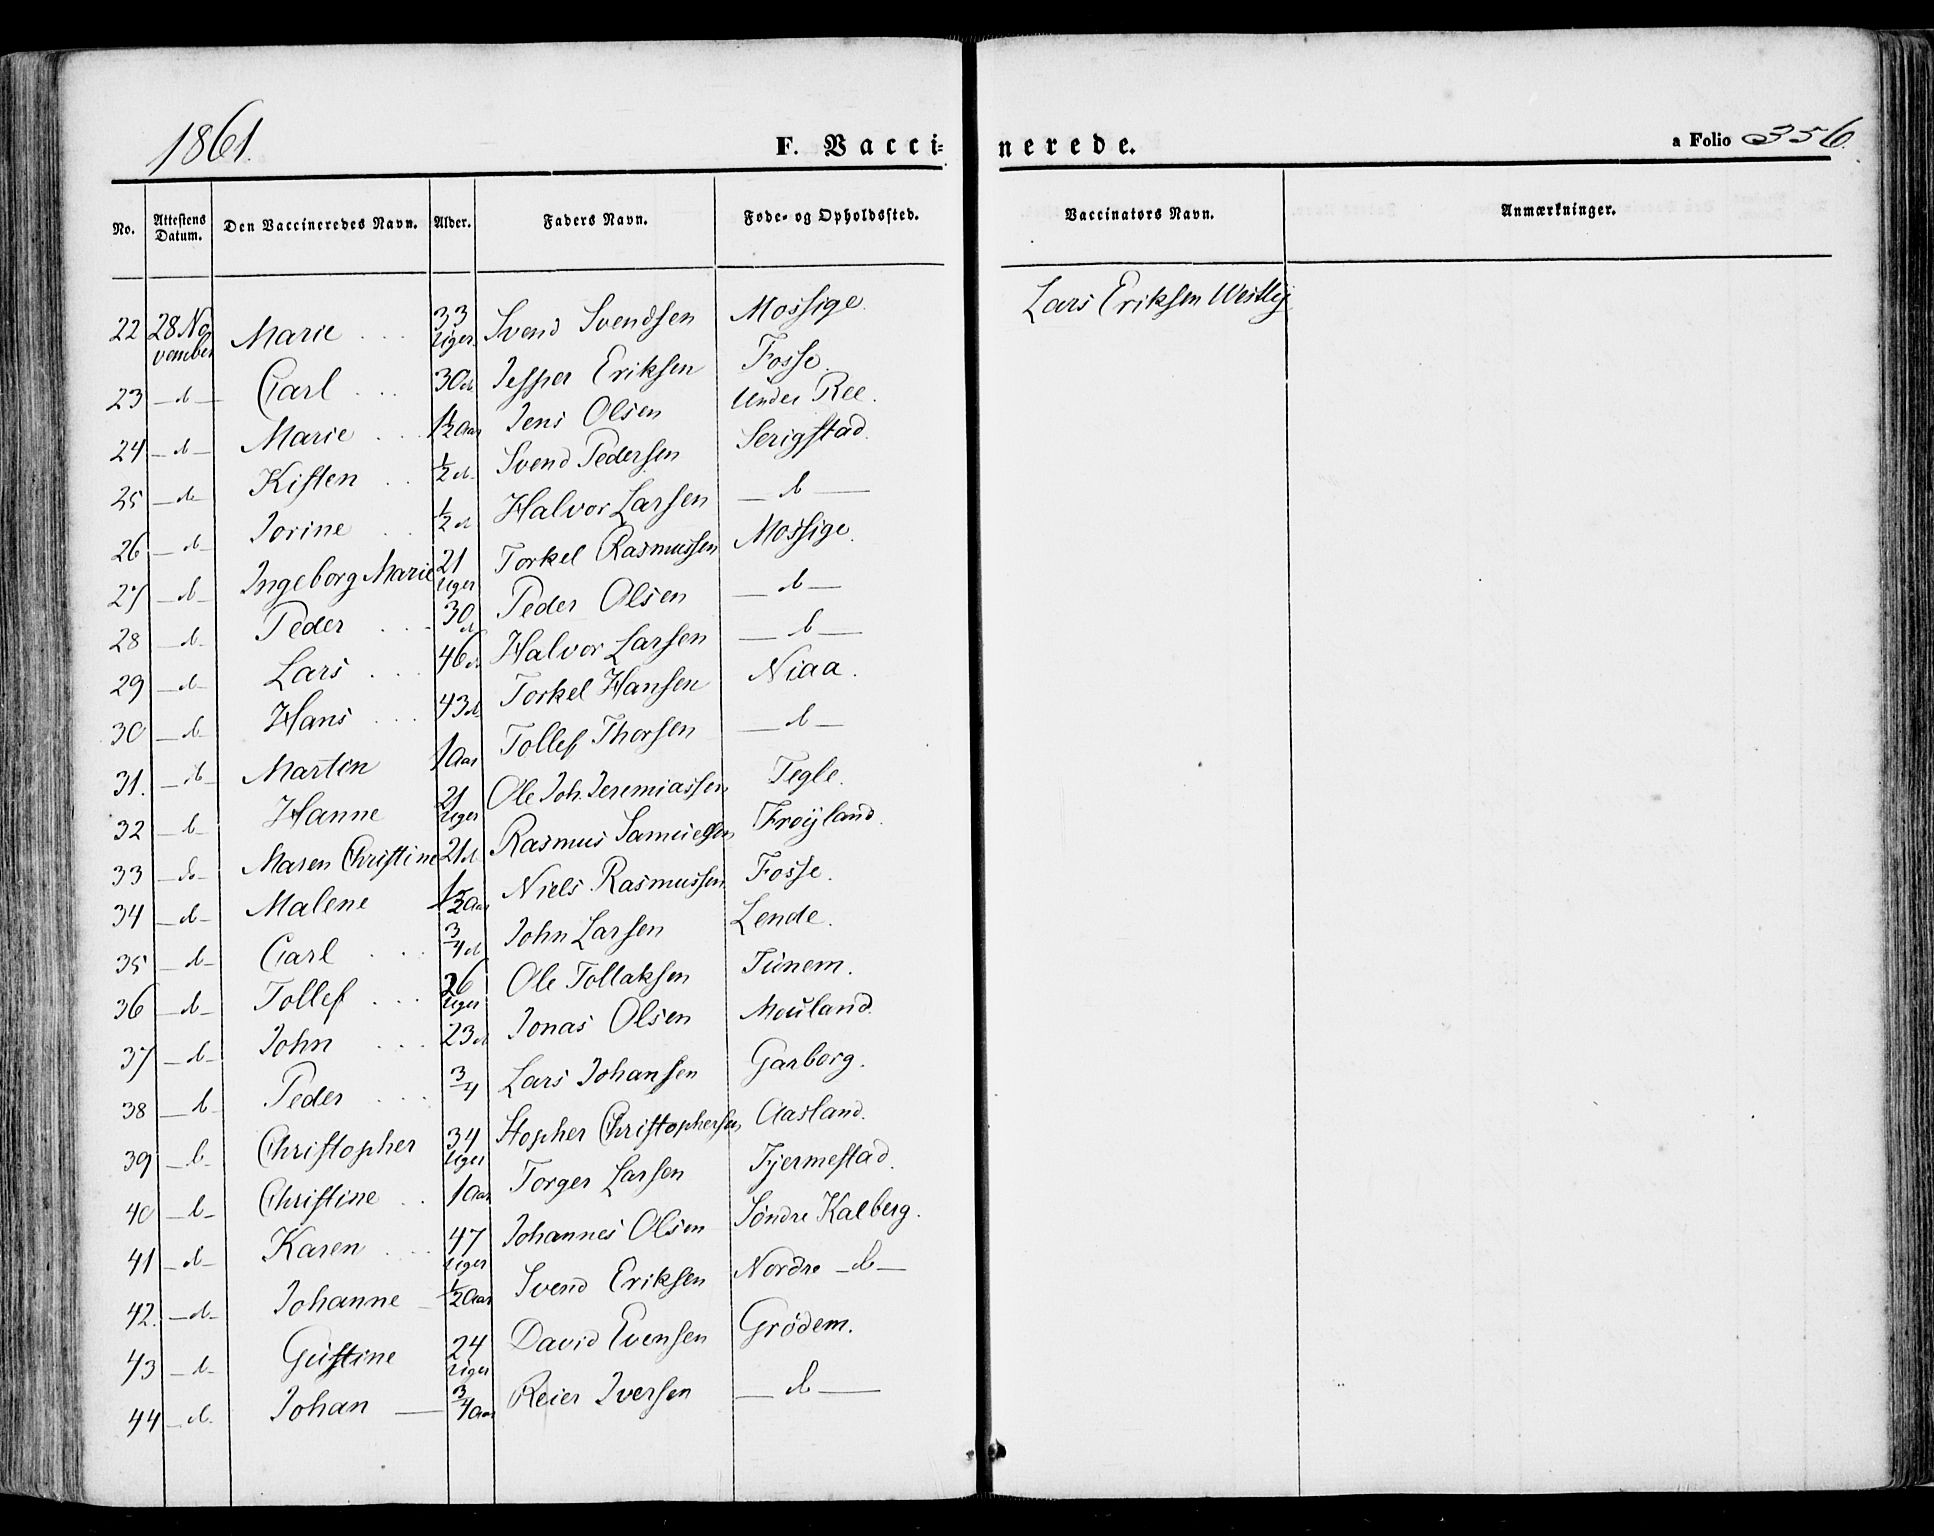 1861.
F. Vaccinerede.
a Folio 356.
No. Attestens Datum. Den Vaccineredes Navn. Alder. Faders Navn. Føde- og Opholdssted. Vaccinators Navn. Anmærkninger.
22 28 November Marie 33 Uger Svend Svendsen Mossige. Lars Eriksen Westly
23 — d — Carl 30 d Jesper Eriksen Fosse.
24 — d — Marie 1½ Aar Jens Olsen Under Ree.
25 — d — Kisten ½ d. Svend Pedersen Serigstad.
26 — d — Jorine ½ d Halvor Larsen — d —
27 — d — Ingeborg Marie 21 Uger Torkel Rasmussen Mossige.
28 — d — Peder 30 d Peder Olsen — d —
29 — d — Lars 46 d Halvor Larsen — d —
30 — d — Hans 43 d Torkel Hansen Niaa.
31. — d — Martin 1 Aar Tollef Thorsen — d —
32 — d — Hanne 21 Uger Ole Joh. Jeremiassen Tegle.
33 — do — Maren Christine 21 d Rasmus Samuelsen Frøyland.
34 — d — Malene ½ Aar Niels Rasmussen Fosse.
35 — d — Carl ¾ d John Larsen Lende.
36 — d — Tollef 26 Uger Ole Tollaksen Tunem.
37 — d — John 23 d Jonas Olsen Mouland.
38 — d — Peder ¾ Lars Johansen Garborg.
39 — d — Christopher 34 Uger Stopher Christophersen Aasland.
40 — d — Christine 1 Aar Torger Larsen Tjermestad.
41 — d — Karen 47 Uger Johannes Olsen Søndre Kalberg.
42. — d — Johanne ½ Aar Svend Eriksen Nordre — d —
43 — d — Gustine 24 Uger David Evensen Grødem.
44 — d. Johan ¾ Aar Reier Iversen — d —